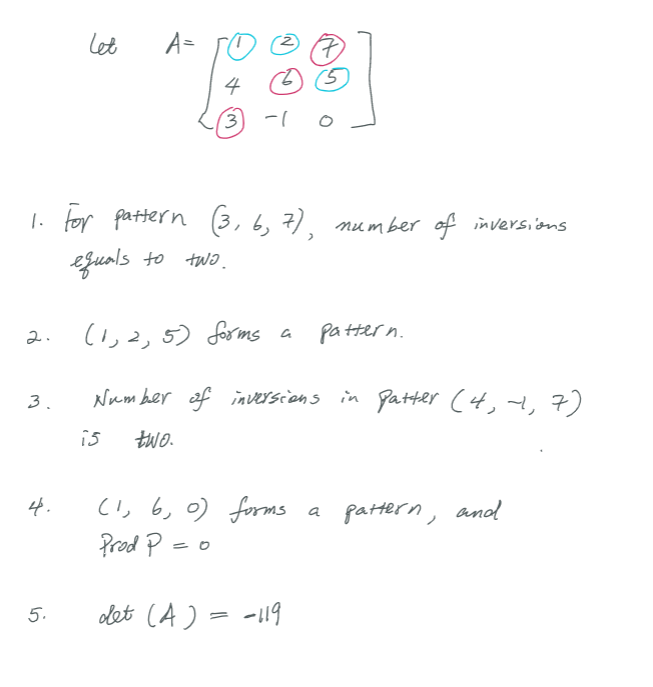 let A= [1 2 7
4 6 5
3 -1 0]
1. For pattern (3, 6, 7), number of inversions
equals to two.
2. (1, 2, 5) forms a pattern.
3. Number of inversions in Patter (4, -1, 7)
is two.
4. (1, 6, 0) forms a pattern, and
Prod P = 0
5. det (A) = -119